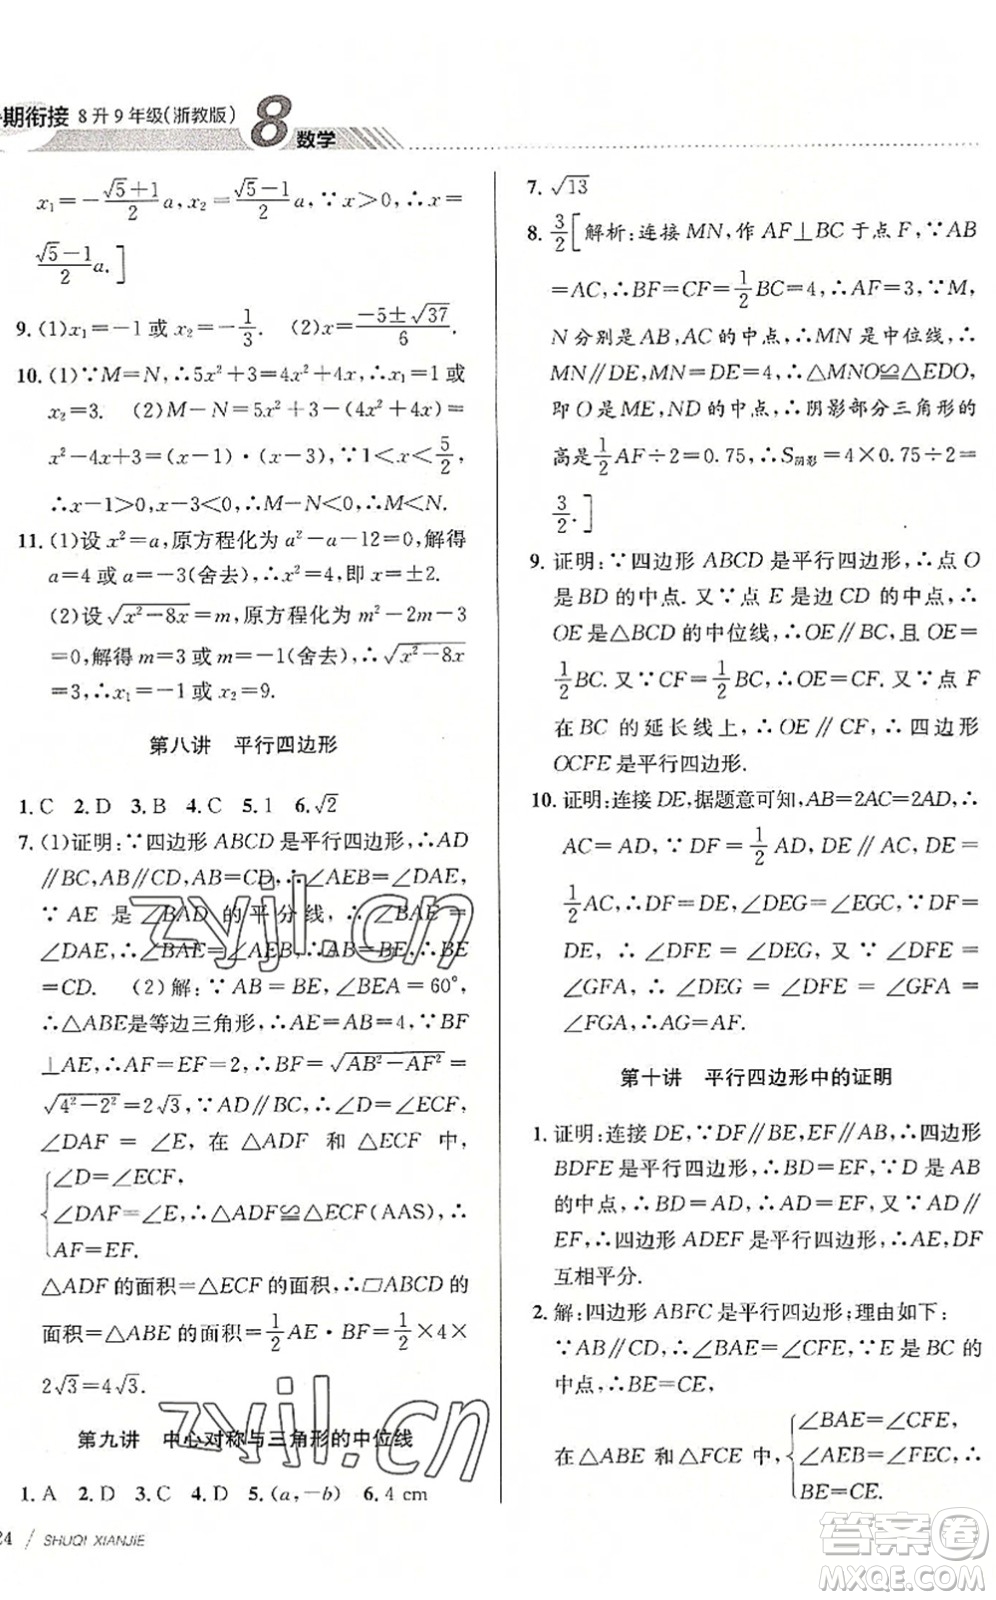 期衔接 8升9年级(浙教版) 8 数学
x₁=-(√5+1)/2 a,x₂=(√5-1)/2 a,∵x>0,∴x=
(√5-1)/2 a.]
9. (1)x₁=-1或x₂=-1/3. (2)x=(-5±√37)/6.
10. (1)∵M=N,∴5x²+3=4x²+4x,∴x₁=1或
x₂=3. (2)M-N=5x²+3-(4x²+4x)=
x²-4x+3=(x-1)·(x-3),∵1<x<5/2,
∴x-1>0,x-3<0,∴M-N<0,∴M<N.
11. (1)设x²=a,原方程化为a²-a-12=0,解得
a=4或a=-3(舍去),∴x²=4,即x=±2.
(2)设√(x²-8x)=m,原方程化为m²-2m-3
=0,解得m=3或m=-1(舍去),∴√(x²-8x)
=3,∴x₁=-1或x₂=9.
第八讲 平行四边形
1. C 2. D 3. B 4. C 5. 1 6. √2
7. (1)证明:∵四边形ABCD是平行四边形,∴AD
∥BC,AB∥CD,AB=CD,∴∠AEB=∠DAE,
∵AE是∠BAD的平分线,∴∠BAE=
∠DAE,∴∠BAE=∠AEB,∴AB=BE,∴BE
=CD. (2)解:∵AB=BE,∠BEA=60°,
∴△ABE是等边三角形,∴AE=AB=4,∵BF
⊥AE,∴AF=EF=2,∴BF=√(AB²-AF²)=
√(4²-2²)=2√3,∵AD∥BC,∴∠D=∠ECF,
∠DAF=∠E,在△ADF和△ECF中,
∠D=∠ECF,
∠DAF=∠E,∴△ADF≌△ECF(AAS),∴
AF=EF.
△ADF的面积=△ECF的面积,∴▱ABCD的
面积=△ABE的面积=1/2AE·BF=1/2×4×
2√3=4√3.
第九讲 中心对称与三角形的中位线
1. A 2. D 3. C 4. D 5. (a,-b) 6. 4 cm
24 / SHUQI XIANJIE
7. √13
8. 3/2[解析:连接MN,作AF⊥BC于点F,∵AB
=AC,∴BF=CF=1/2BC=4,∴AF=3,∵M,
N分别是AB,AC的中点,∴MN是中位线,∴
MN∥DE,MN=DE=4,∴△MNO≌△EDO,
即O是ME,ND的中点,∴阴影部分三角形的
高是1/2AF÷2=0.75,∴S阴影=4×0.75÷2=
3/2.]
9. 证明:∵四边形ABCD是平行四边形,∴点O
是BD的中点.又∵点E是边CD的中点,∴
OE是△BCD的中位线,∴OE∥BC,且OE=
1/2BC.又∵CF=1/2BC,∴OE=CF.又∵点F
在BC的延长线上,∴OE∥CF,∴四边形
OCFE是平行四边形.
10. 证明:连接DE,据题意可知,AB=2AC=2AD,∴
AC=AD,∵DF=1/2AD,DE∥AC,DE=
1/2AC,∴DF=DE,∠DEG=∠EGC,∵DF=
DE,∴∠DFE=∠DEG,又∵∠DFE=
∠GFA,∴∠DEG=∠DFE=∠GFA=
∠FGA,∴AG=AF.
第十讲 平行四边形中的证明
1. 证明:连接DE,∵DF∥BE,EF∥AB,∴四边形
BDFE是平行四边形,∴BD=EF,∵D是AB
的中点,∴BD=AD,∴AD=EF,又∵AD∥
EF,∴四边形ADEF是平行四边形,∴AE,DF
互相平分.
2. 解:四边形ABFC是平行四边形;理由如下:
∵AB∥CD,∴∠BAE=∠CFE,∵E是BC的
中点,∴BE=CE,
∠BAE=∠CFE,
在△ABE和△FCE中,∠AEB=∠FEC,∴
BE=CE,
zyjl.cn
zyjl.cn
答案圈
MXQE.COM